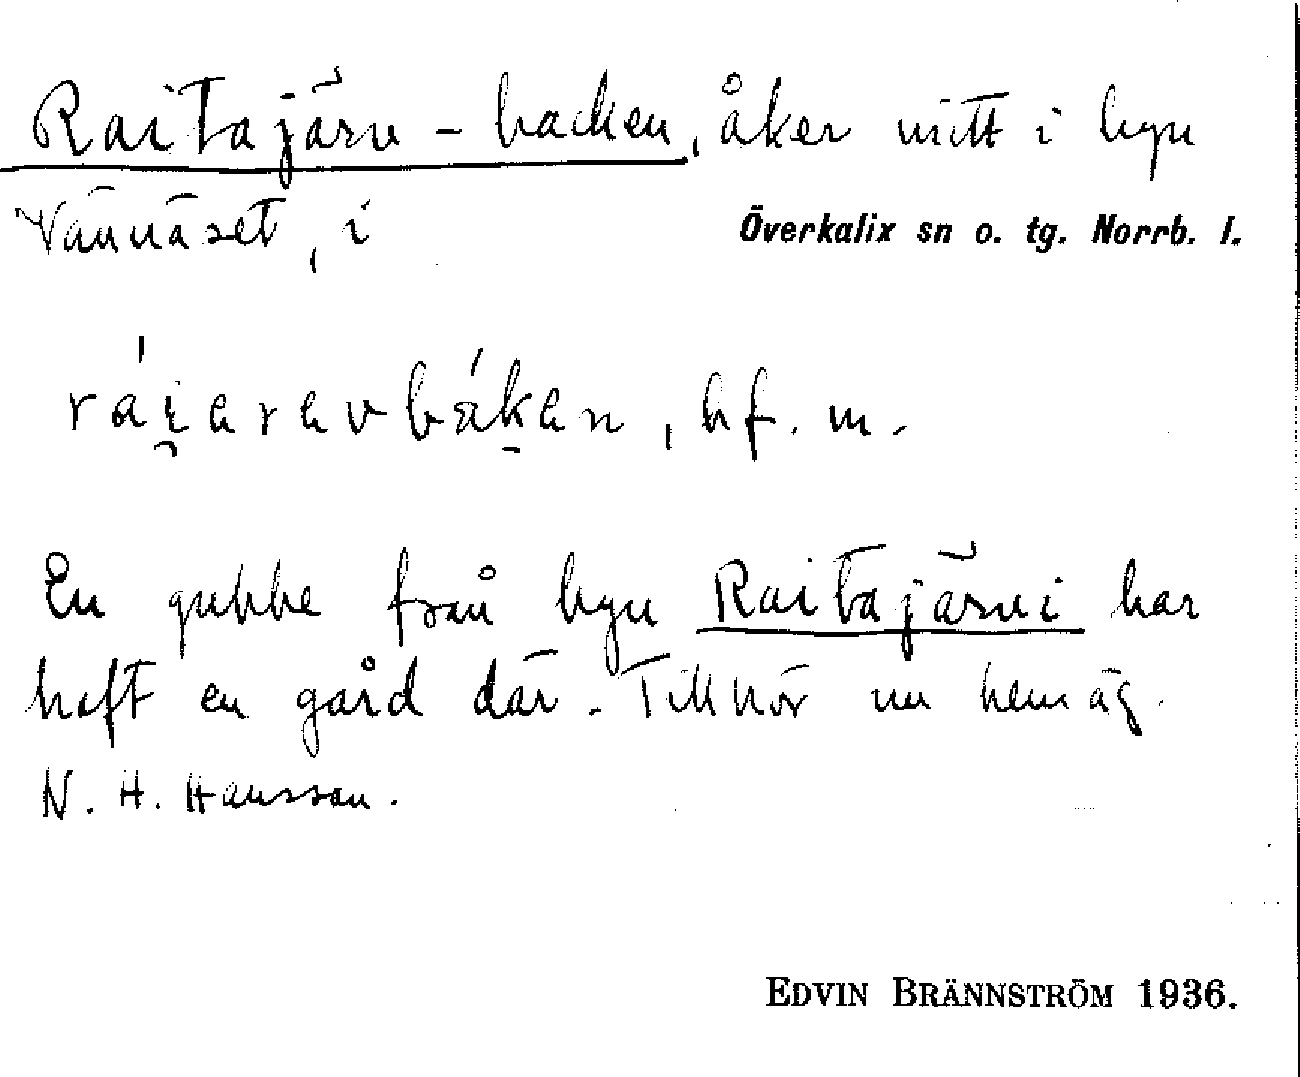 Raitajärv-backen, åker mitt i byn
Vännäset, i Överkalix sn o. tg. Norrb. l.
hf. m.
En gubbe från byn Raitajärvi har
haft en gård där. Tillhör nu hemäg.
N. H. Hansson.
EDVIN BRÄNNSTRÖM 1936.